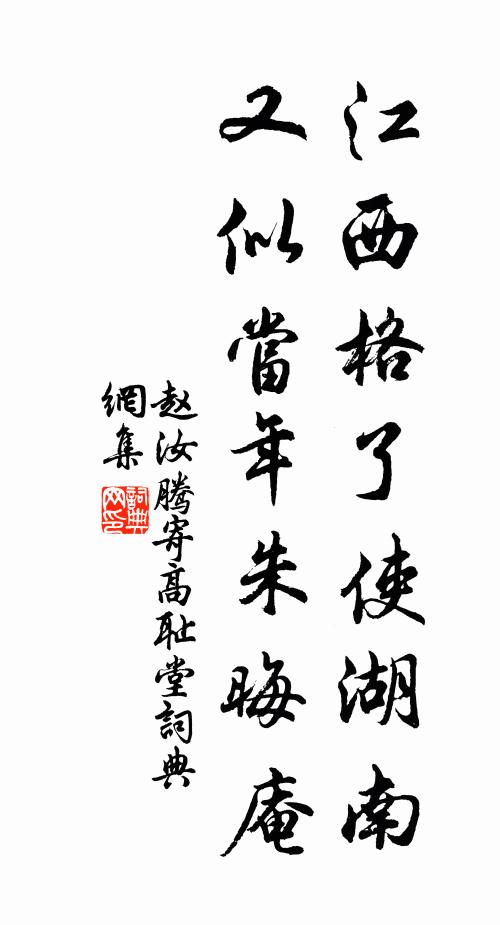 江西格了使湖南
又似當年朱晦庵
赵汝腾寄高耻堂詞典
網集
詞典
网印